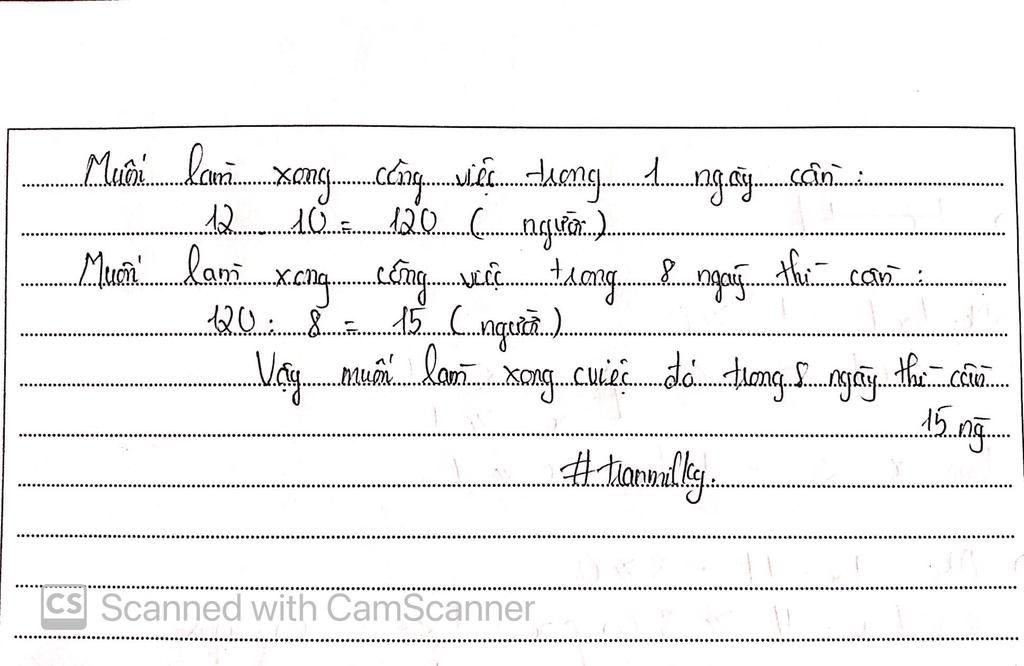 Muốn làm xong công việc trong 1 ngày cần :
12 . 10 = 120 ( người )
Muốn làm xong công việc trong 8 ngày thì cần :
120 : 8 = 15 ( người )
Vậy muốn làm xong cviệc đó trong 8 ngày thì cần
15 ng
#tranmilky.
CS Scanned with CamScanner